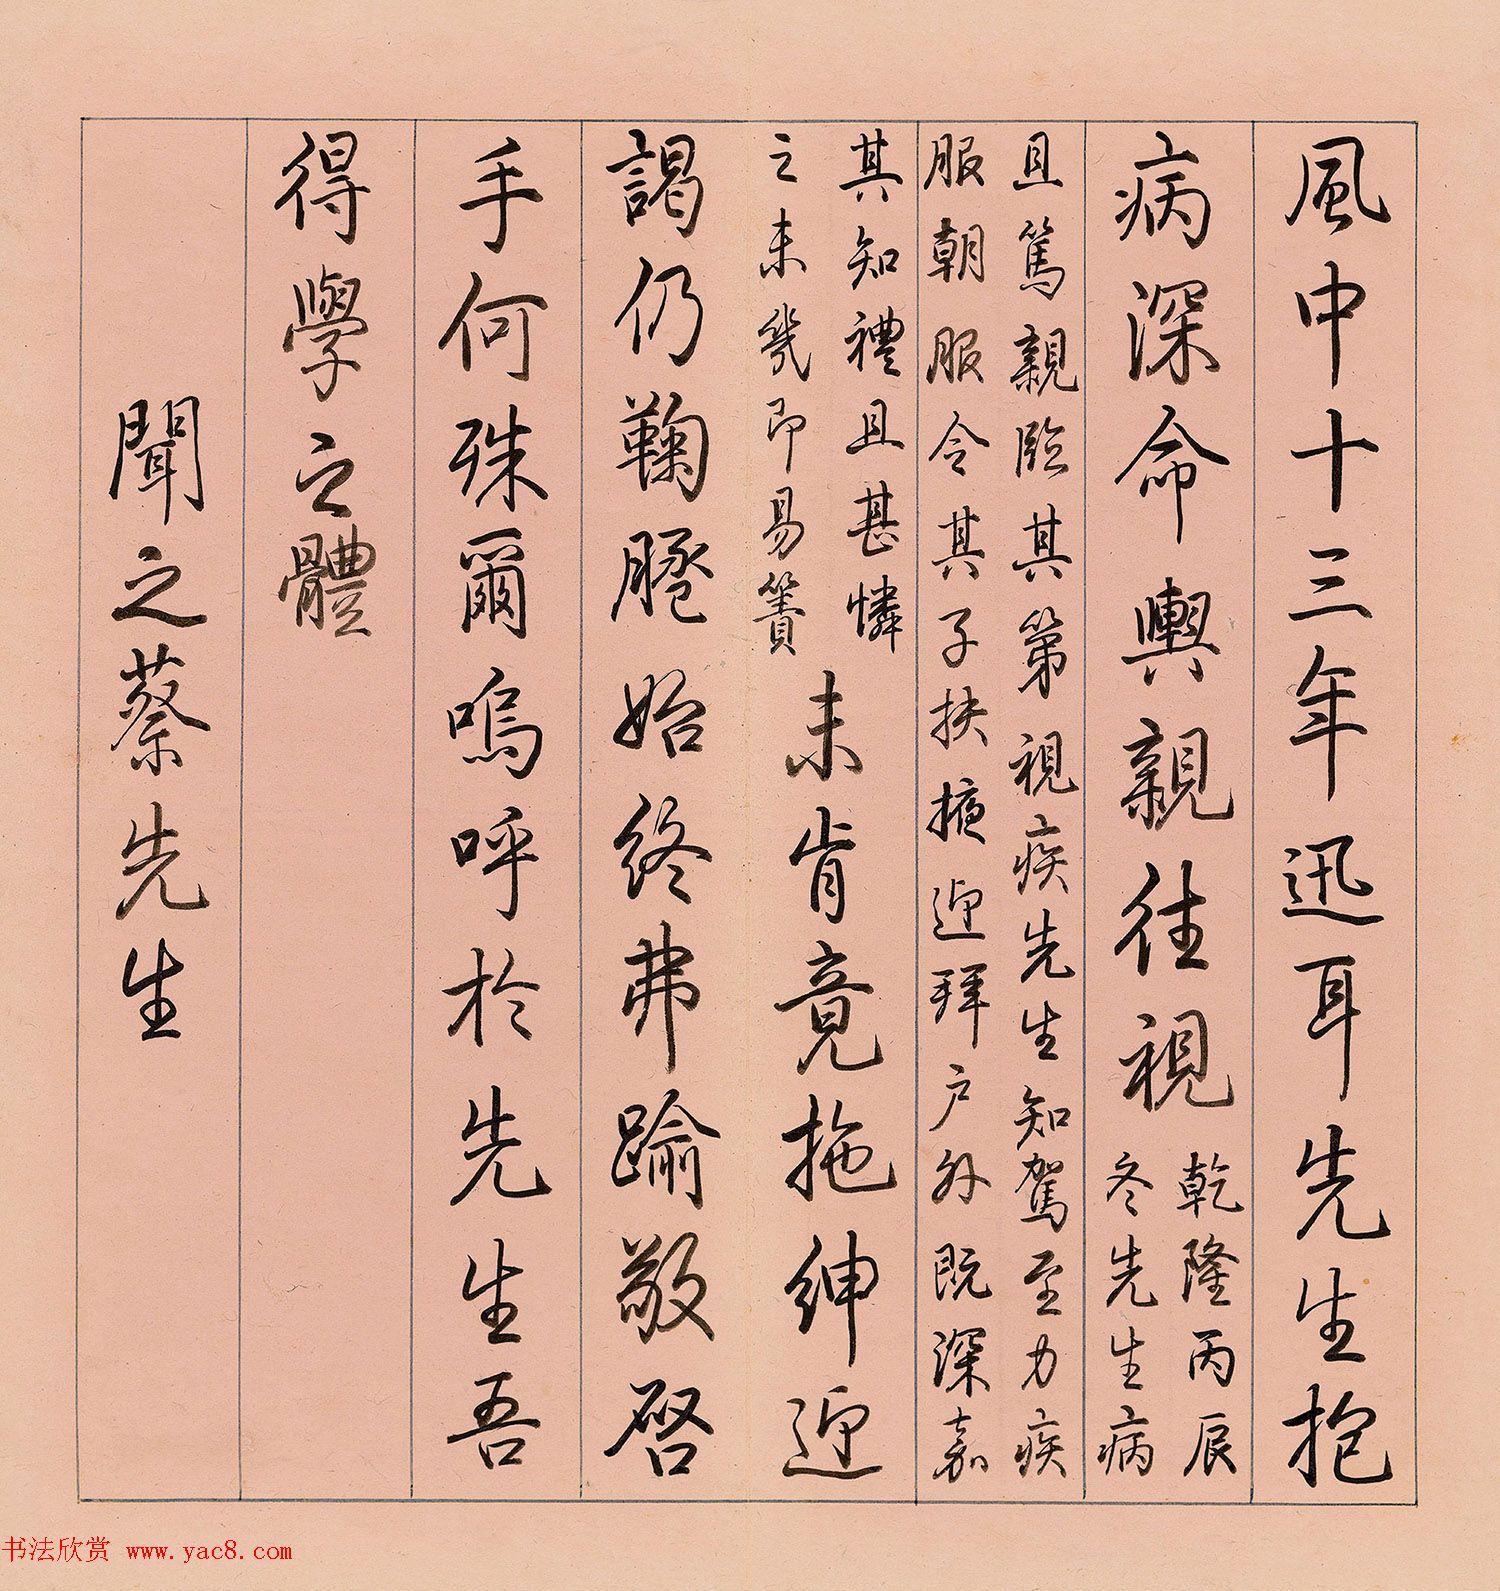 風中十三年迅耳先生抱
病深命輿親往視
乾隆丙辰
冬先生病
且篤親臨其第視疾先生知駕至力疾
服朝服令其子扶掖迎拜户外既深嘉
其知禮且甚憐
之未幾即易簀
未肯竟拖紳迎
謁仍鞠𦡀始終弗踰敬啓
手何殊爾嗚呼於先生吾
得學之體
聞之蔡先生
书法欣赏 www.yac8.com